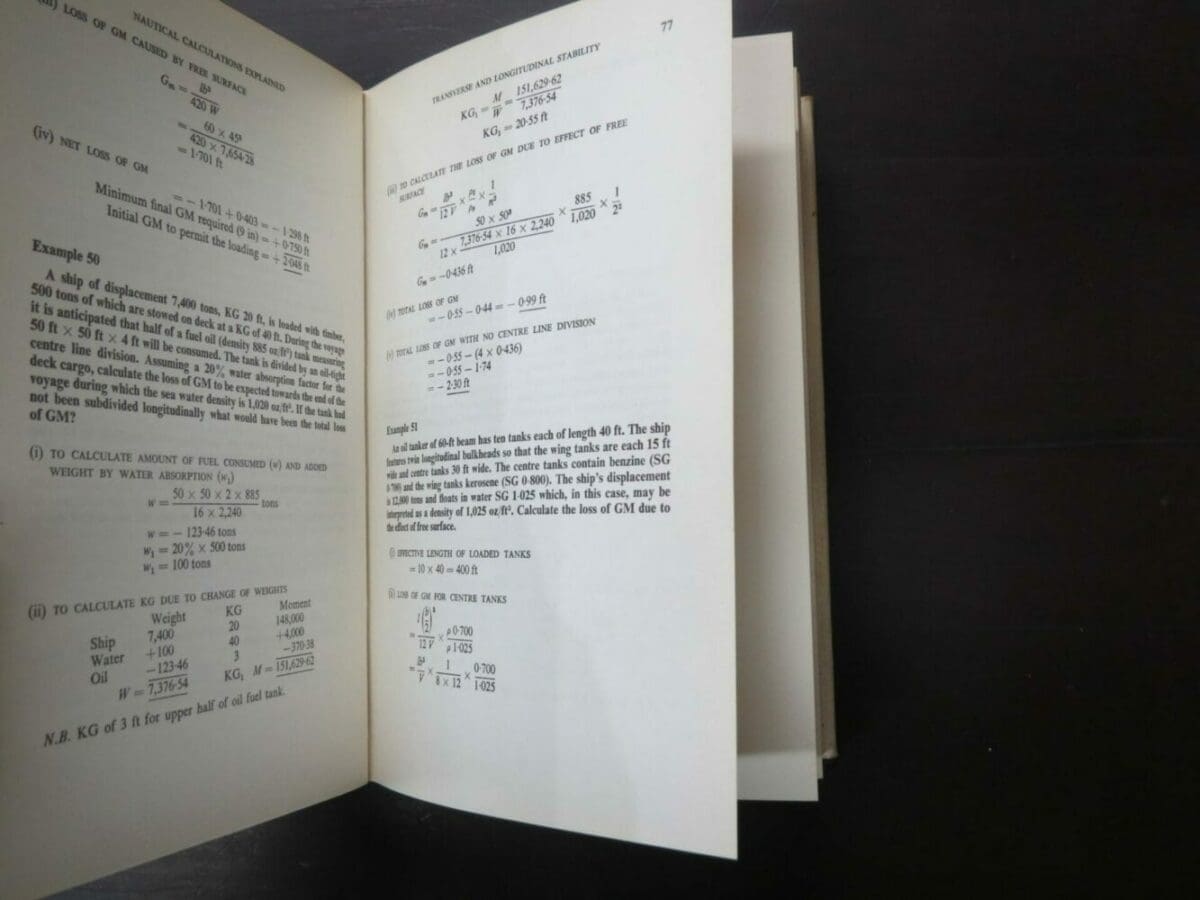 NAUTICAL CALCULATIONS EXPLAINED
(iii) LOSS OF GM CAUSED BY FREE SURFACE
Gm = lb³ / 420 W
= 60 × 45³ / 420 × 7,654·28
= 1·701 ft
(iv) NET LOSS OF GM
= − 1·701 + 0·403 = − 1·298 ft
Minimum final GM required (9 in) = + 0·750 ft
Initial GM to permit the loading = + 2·048 ft
Example 50
A ship of displacement 7,400 tons, KG 20 ft, is loaded with timber,
500 tons of which are stowed on deck at a KG of 40 ft. During the voyage
it is anticipated that half of a fuel oil (density 885 oz/ft³) tank measuring
50 ft × 50 ft × 4 ft will be consumed. The tank is divided by an oil-tight
centre line division. Assuming a 20% water absorption factor for the
deck cargo, calculate the loss of GM to be expected towards the end of the
voyage during which the sea water density is 1,020 oz/ft³. If the tank had
not been subdivided longitudinally what would have been the total loss
of GM?
(i) TO CALCULATE AMOUNT OF FUEL CONSUMED (w) AND ADDED
WEIGHT BY WATER ABSORPTION (w₁)
w = 50 × 50 × 2 × 885 / 16 × 2,240 tons
w = − 123·46 tons
w₁ = 20% × 500 tons
w₁ = 100 tons
(ii) TO CALCULATE KG DUE TO CHANGE OF WEIGHTS
Weight KG Moment
Ship 7,400 20 148,000
Water +100 40 +4,000
Oil −123·46 3 −370·38
W = 7,376·54 KG₁ M = 151,629·62
N.B. KG of 3 ft for upper half of oil fuel tank.
77
TRANSVERSE AND LONGITUDINAL STABILITY
KG₁ = M / W = 151,629·62 / 7,376·54
KG₁ = 20·55 ft
(iii) TO CALCULATE THE LOSS OF GM DUE TO EFFECT OF FREE
SURFACE
Gm = lb³ / 12 V × ρ₀ / ρw × 1 / n²
Gm = 50 × 50³ / 12 × 7,376·54 × 16 × 2,240 / 1,020 × 885 / 1,020 × 1 / 2²
Gm = −0·436 ft
(iv) TOTAL LOSS OF GM
= − 0·55 − 0·44 = − 0·99 ft
(v) TOTAL LOSS OF GM WITH NO CENTRE LINE DIVISION
= −0·55 − (4 × 0·436)
= −0·55 − 1·74
= − 2·30 ft
Example 51
An oil tanker of 60-ft beam has ten tanks each of length 40 ft. The ship
features twin longitudinal bulkheads so that the wing tanks are each 15 ft
wide and centre tanks 30 ft wide. The centre tanks contain benzine (SG
0·700) and the wing tanks kerosene (SG 0·800). The ship's displacement
is 12,000 tons and floats in water SG 1·025 which, in this case, may be
interpreted as a density of 1,025 oz/ft³. Calculate the loss of GM due to
the effect of free surface.
(i) EFFECTIVE LENGTH OF LOADED TANKS
= 10 × 40 = 400 ft
(ii) LOSS OF GM FOR CENTRE TANKS
= l(b/2)³ / 12 V × ρ 0·700 / ρ 1·025
= lb³ / V × 1 / 8 × 12 × 0·700 / 1·025